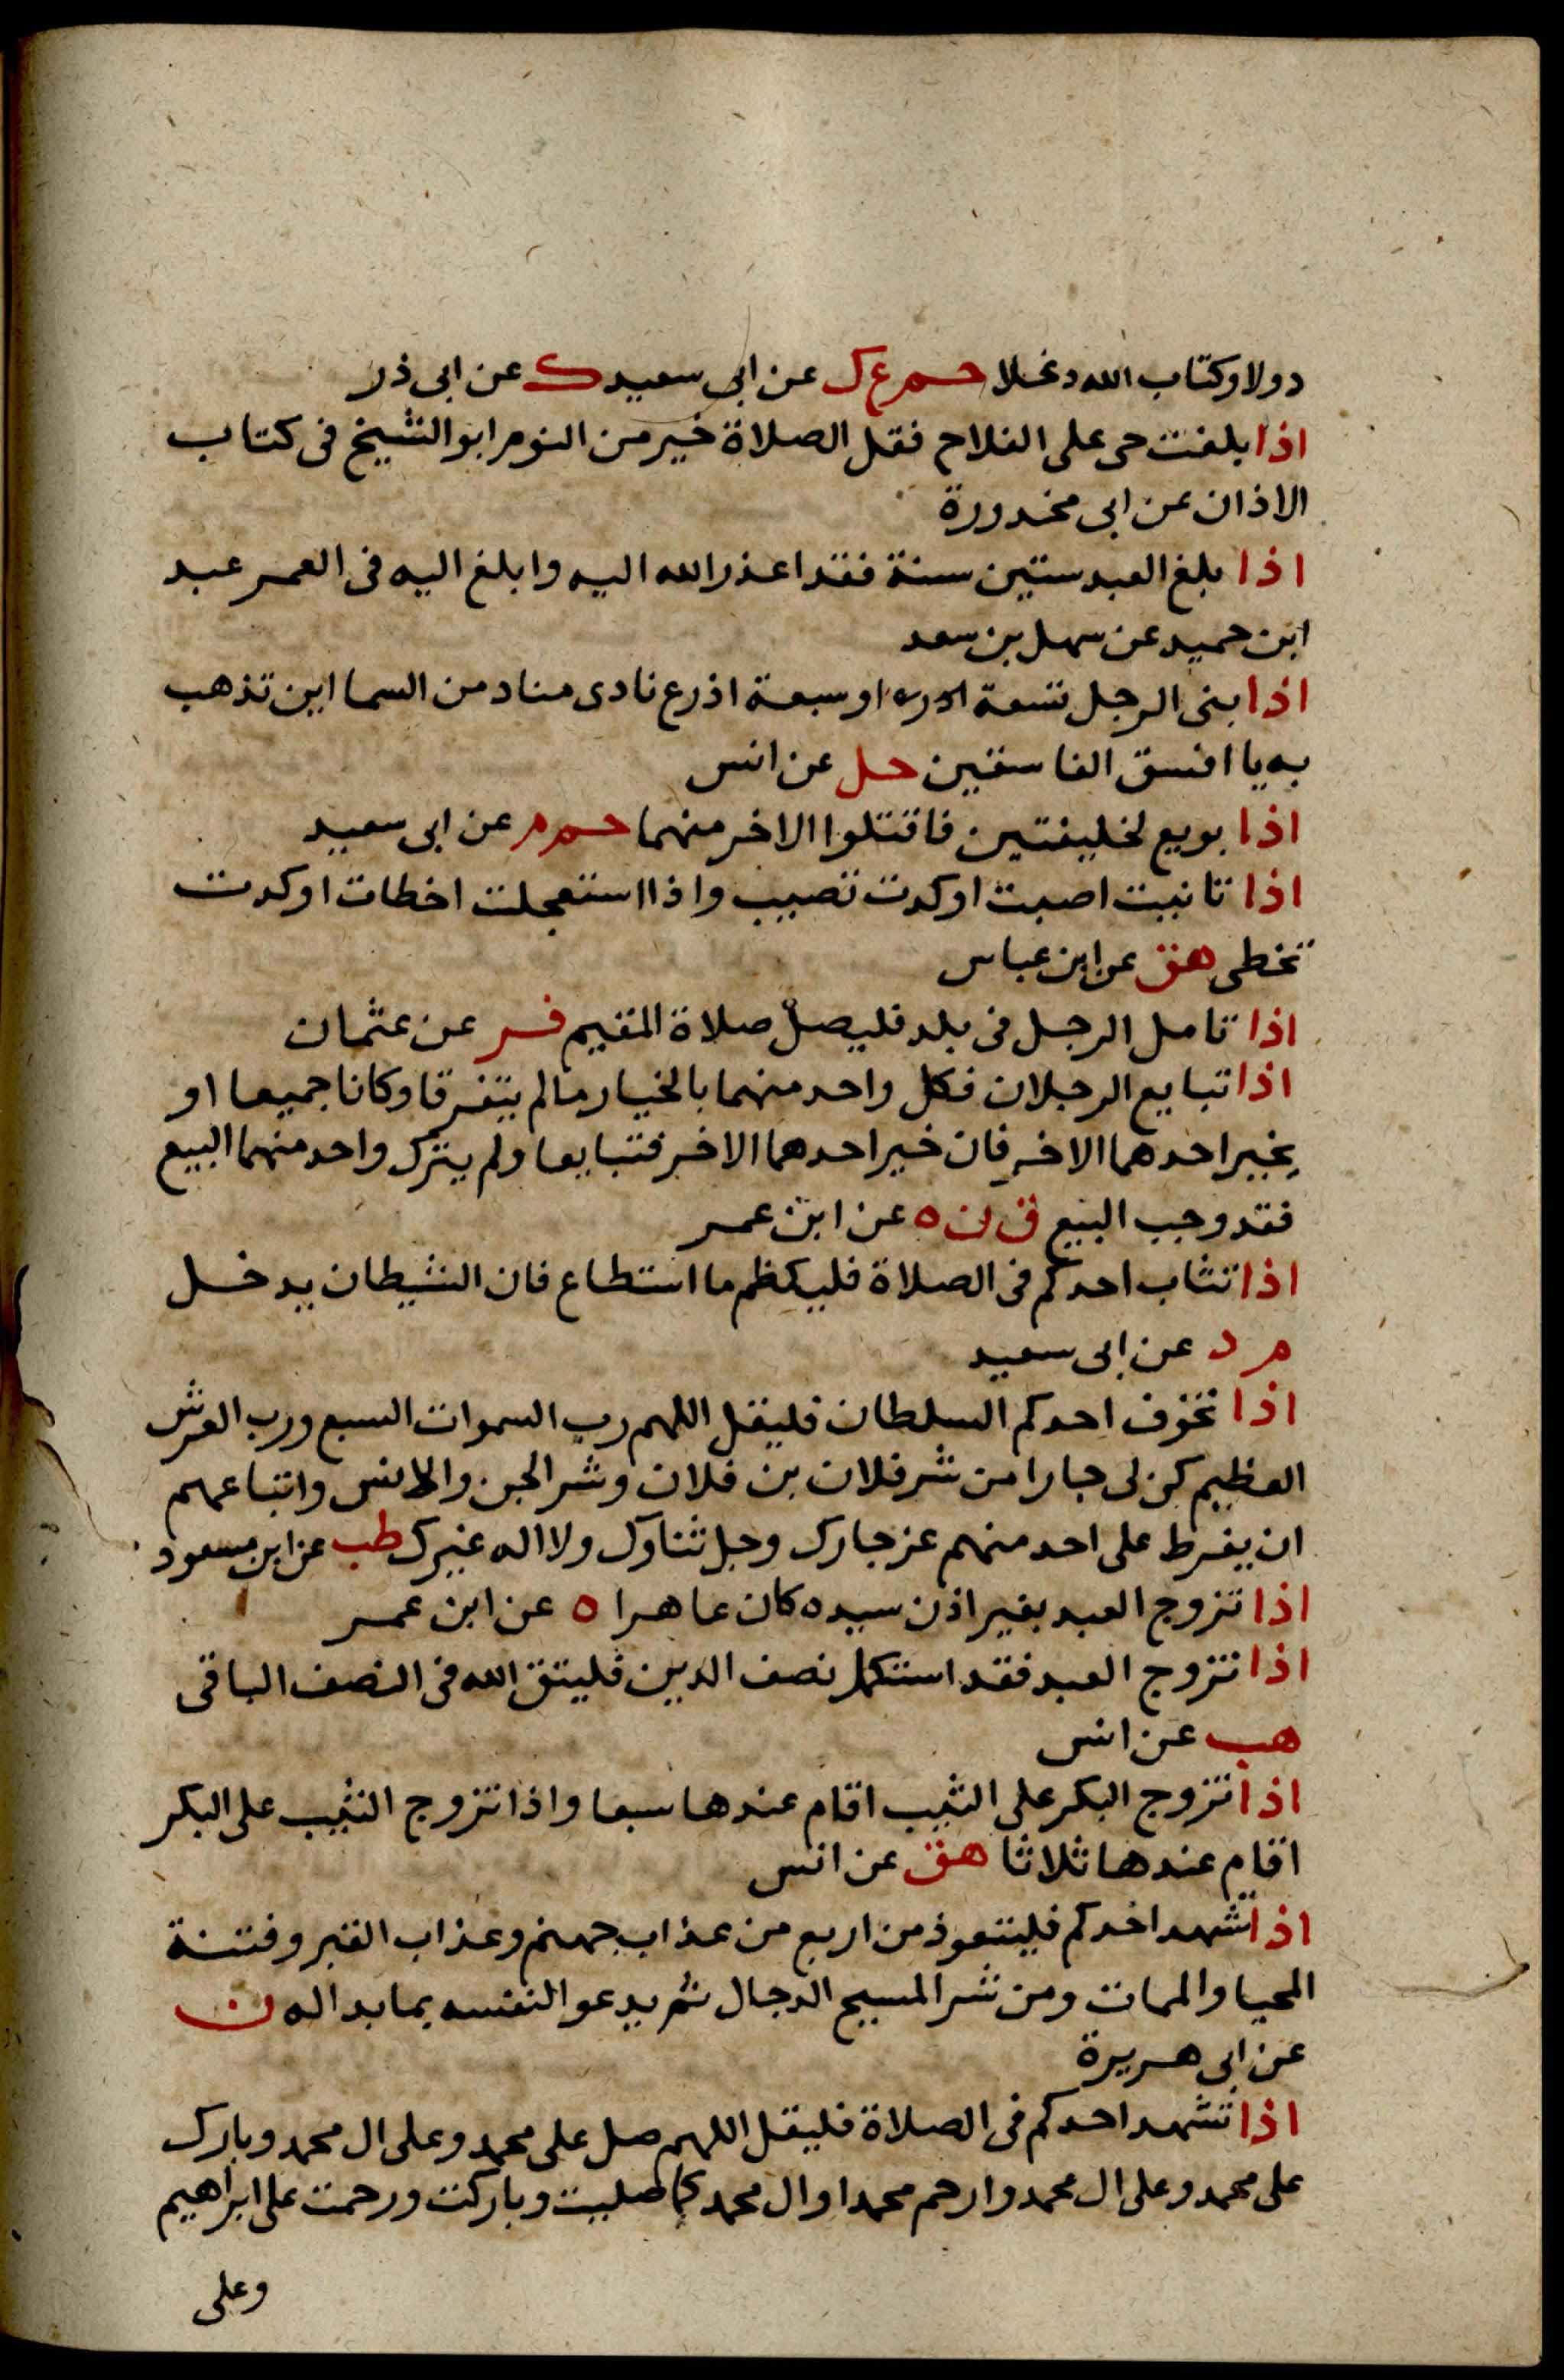 دولا وكتاب الله دغلا حم ع ك عن ابى سعيد ك عن ابى ذر
اذا بلغت حى على الفلاح فقل الصلاة خير من النوم ابو الشيخ فى كتاب
الاذان عن ابى محذورة
اذا بلغ العبد ستين سنة فقد اعذر الله اليه وابلغ اليه فى العمر عبد
ابن حميد عن سهل بن سعد
اذا بنى الرجل تسعة او سبعة اذرع نادى مناد من السما اين تذهب
به يا افسق الفاسقين حل عن انس
اذا بويع لخليفتين فاقتلوا الاخر منهما حم م عن ابى سعيد
اذا تانيت اصبت او كدت تصيب واذا استعجلت اخطات او كدت
تخطى هق عن ابن عباس
اذا تاهل الرجل فى بلد فليصل صلاة المقيم فر عن عثمان
اذا تبايع الرجلان فكل واحد منهما بالخيار ما لم يتفرقا وكانا جميعا او
يخير احدهما الاخر فان خير احدهما الاخر فتبايعا ولم يترك واحد منهما البيع
فقد وجب البيع ق ن ه عن ابن عمر
اذا تثاب احدكم فى الصلاة فليكظم ما استطاع فان الشيطان يدخل
م د عن ابى سعيد
اذا تخوف احدكم السلطان فليقل اللهم رب السموات السبع ورب العرش
العظيم كن لى جارا من شر فلان بن فلان وشر الجن والانس واتباعهم
ان يفرط على احد منهم عز جارك وجل ثناوك ولا اله غيرك طب عن ابن مسعود
اذا تزوج العبد بغير اذن سيده كان عاهرا ه عن ابن عمر
اذا تزوج العبد فقد استكمل نصف الدين فليتق الله فى النصف الباقى
هب عن انس
اذا تزوج البكر على الثيب اقام عندها سبعا واذا تزوج الثيب على البكر
اقام عندها ثلاثا هق عن انس
اذا تشهد احدكم فليتعوذ من اربع من عذاب جهنم وعذاب القبر وفتنة
المحيا والممات ومن شر المسيح الدجال ثم يدعو النفسه بما بدا له ن
عن ابى هريرة
اذا تشهد احدكم فى الصلاة فليقل اللهم صل على محمد وعلى ال محمد وبارك
على محمد وعلى ال محمد وارحم محمدا وال محمد كما صليت وباركت ورحمت على ابراهيم
وعلى